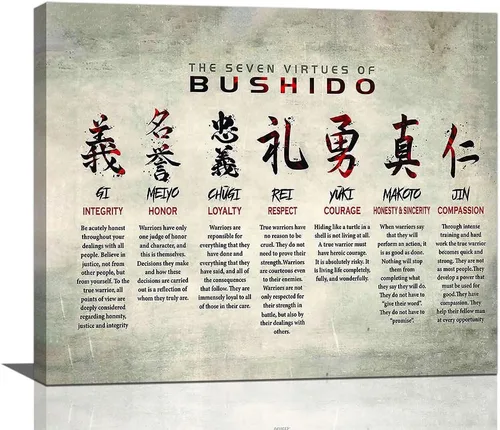 THE SEVEN VIRTUES OF
BUSHIDO
義
名誉
忠義
礼
勇
真
仁
GI
MEIYO
CHŪGI
REI
YŪKI
MAKOTO
JIN
INTEGRITY
HONOR
LOYALTY
RESPECT
COURAGE
HONESTY & SINCERITY
COMPASSION
Be acutely honest
throughout your
dealings with all
people. Believe in
justice, not from
other people, but
from yourself. To the
true warrior, all
points of view are
deeply considered
regarding honesty,
justice and integrity
Warriors have only
one judge of honor
and character, and
this is themselves.
Decisions they make
and how these
decisions are carried
out is a reflection of
whom they truly are.
Warriors are
reponsible for
everything that they
have done and
everything they
have said, and all of
the consequences
that follow. They are
immensely loyal to all
of those in their care.
True warriors have
no reason to be
cruel. They do not
need to prove their
strength.Warriors
are courteous even to
their enemies.
Warriors are not
only respected for
their strength in
battle, but also by
their dealings with
others.
Hiding like a turtle in a
shell is not living at all.
A true warrior must
have heroic courage.
It is absolutely risky. It
is living life completely,
fully, and wonderfully.
When warriors
say that they will
perform an action, it
is as good as done.
Nothing will stop
them from
completing what
they say they will do.
They do not have to
"give their word".
They do not have to
"promise".
Through intense
training and hard
work the true warrior
becomes quick and
strong. They are not
as most people.They
develop a power that
must be used for
good.They have
compassion. They
help their fellow man
at every opportunity